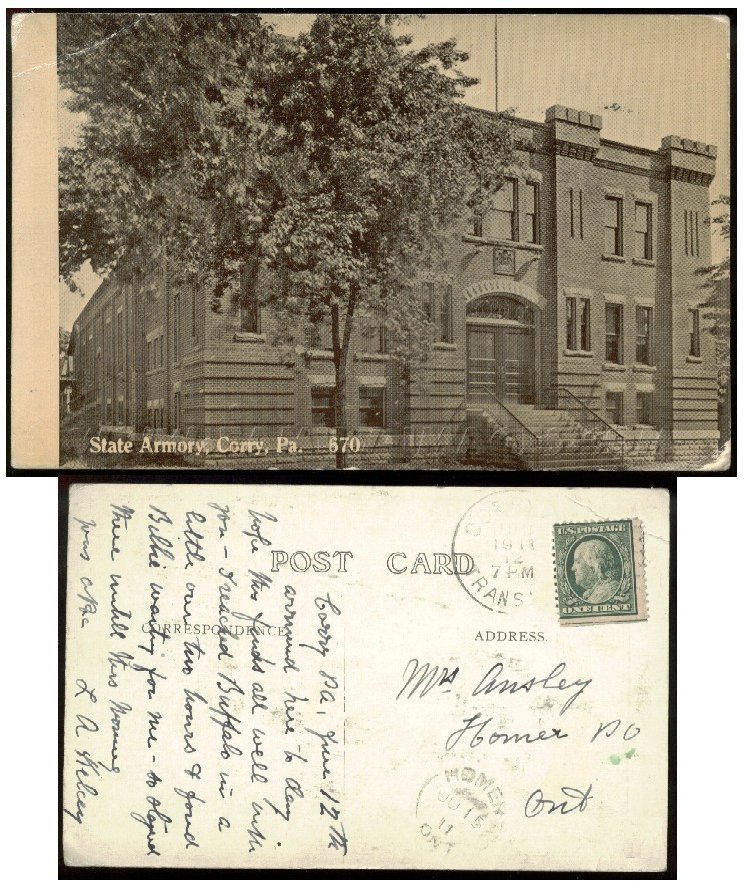 State Armory, Corry, Pa. 670
POST CARD
CORRESPONDENCE
ADDRESS.
Corry Pa, June 12th
arrived here to day
hope this finds all well with
you - I reached Buffalo in a
little over two hours & found
Billie waiting for me - so stayed
there untill this morning
L A Kelcey
Mrs Ansley
Homer PO
Ont
1911
12
7 PM
TRANS
U.S. POSTAGE
ONE CENT
HOMER
JU 15
11
ONT